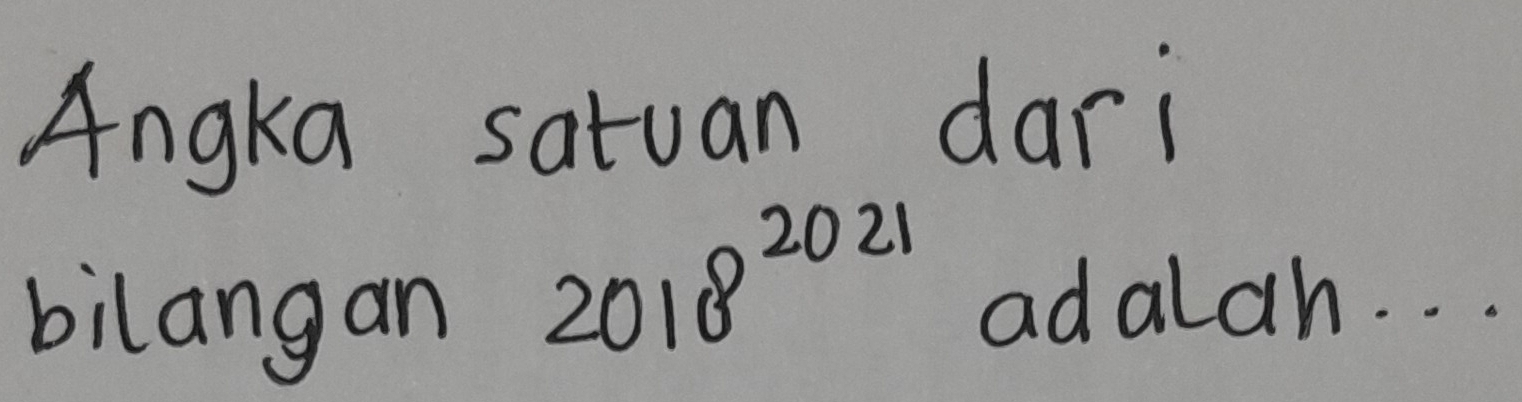 Angka satuan dari
bilangan 2018^2021 adalah...